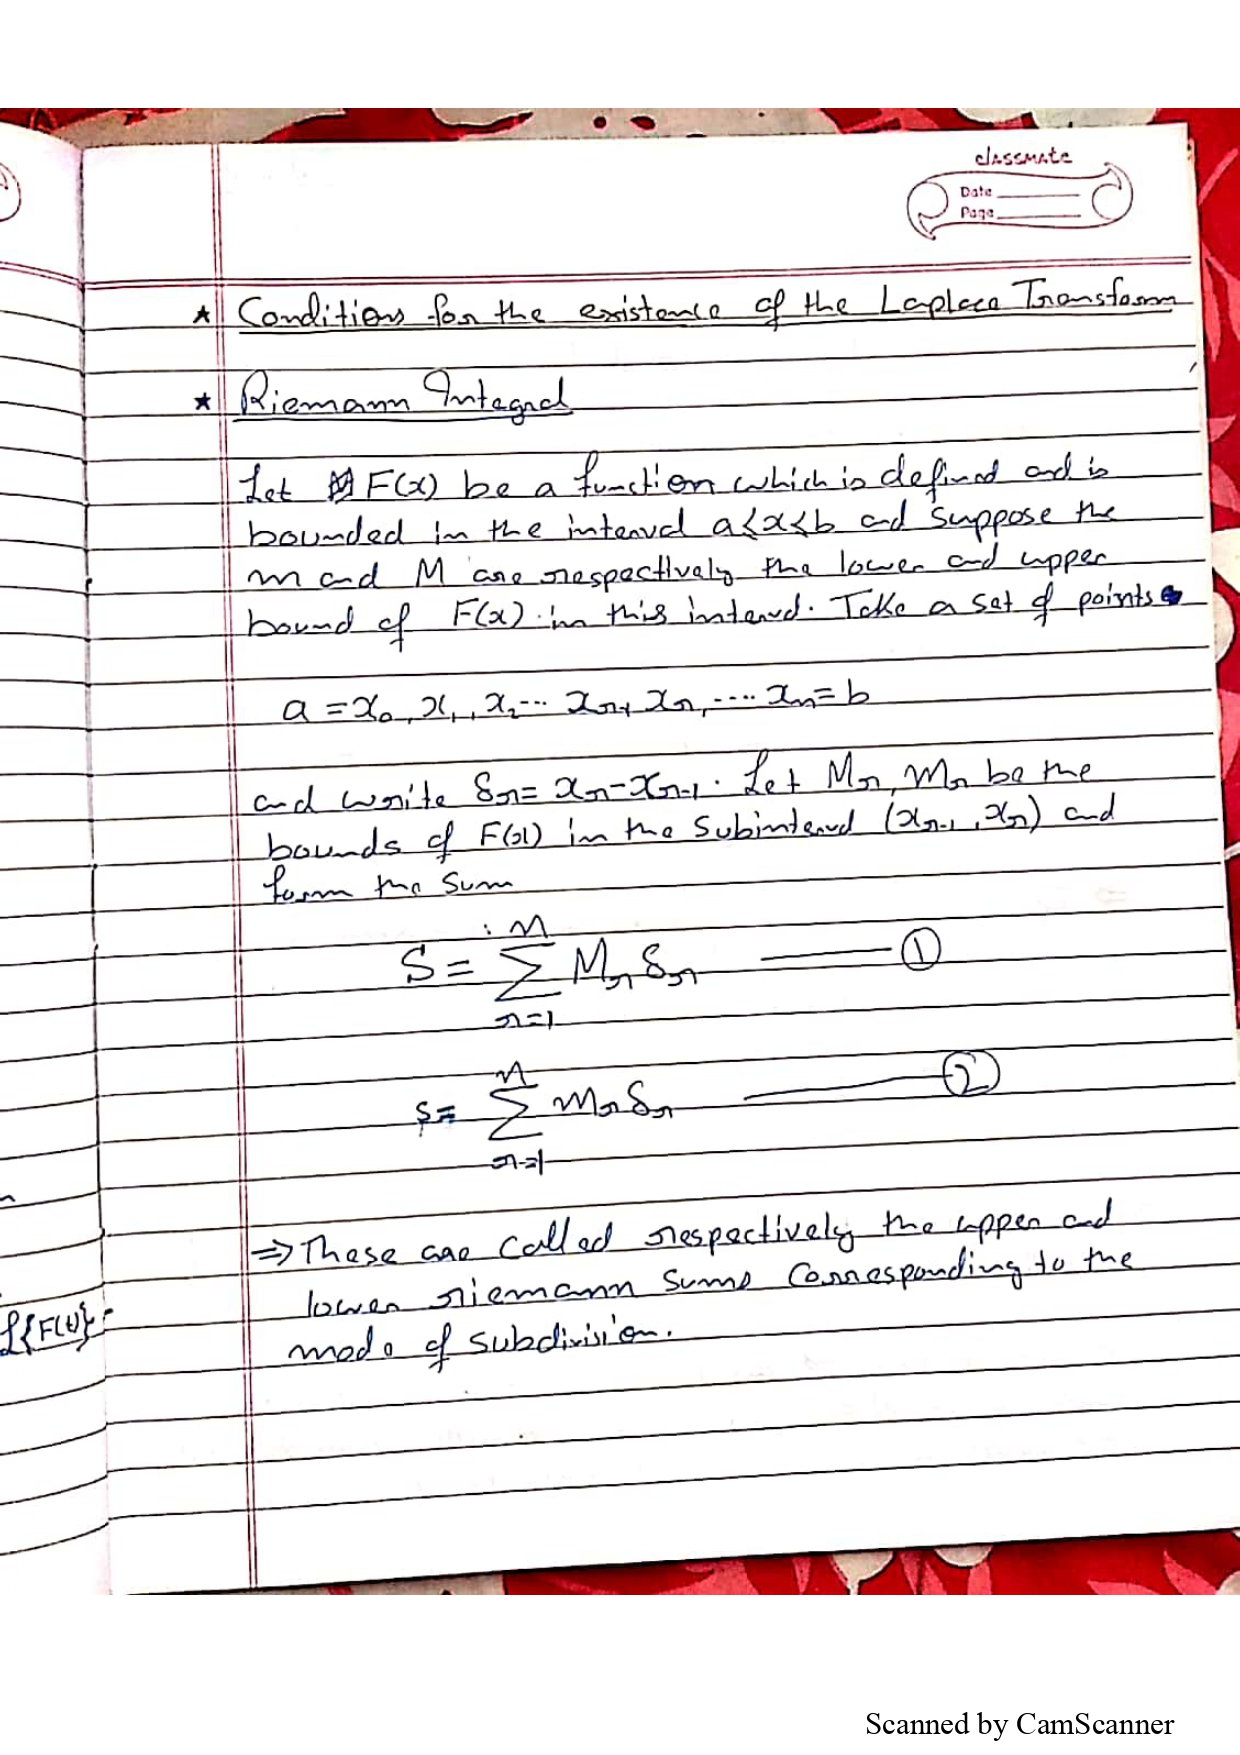 classmate
Date
Page
★ Conditions for the existence of the Laplace Transform
★ Riemann Integral
Let F(x) be a function which is defined and is
bounded in the interval a<x<b and suppose the
m and M are respectively the lower and upper
bound of F(x) in this interval. Take a set of points
a = x₀, x₁, x₂... xᵣ₋₁, xᵣ, .... xₙ = b
and write δᵣ = xᵣ - xᵣ₋₁. Let Mᵣ, mᵣ be the
bounds of F(x) in the subinterval (xᵣ₋₁, xᵣ) and
form the sum
S = ∑ᵣ₌₁ⁿ Mᵣ δᵣ —— ①
s = ∑ᵣ₌₁ⁿ mᵣ δᵣ —— ②
⇒ These are called respectively the upper and
lower riemann sums corresponding to the
L{F(t)}
mode of subdivision.
Scanned by CamScanner